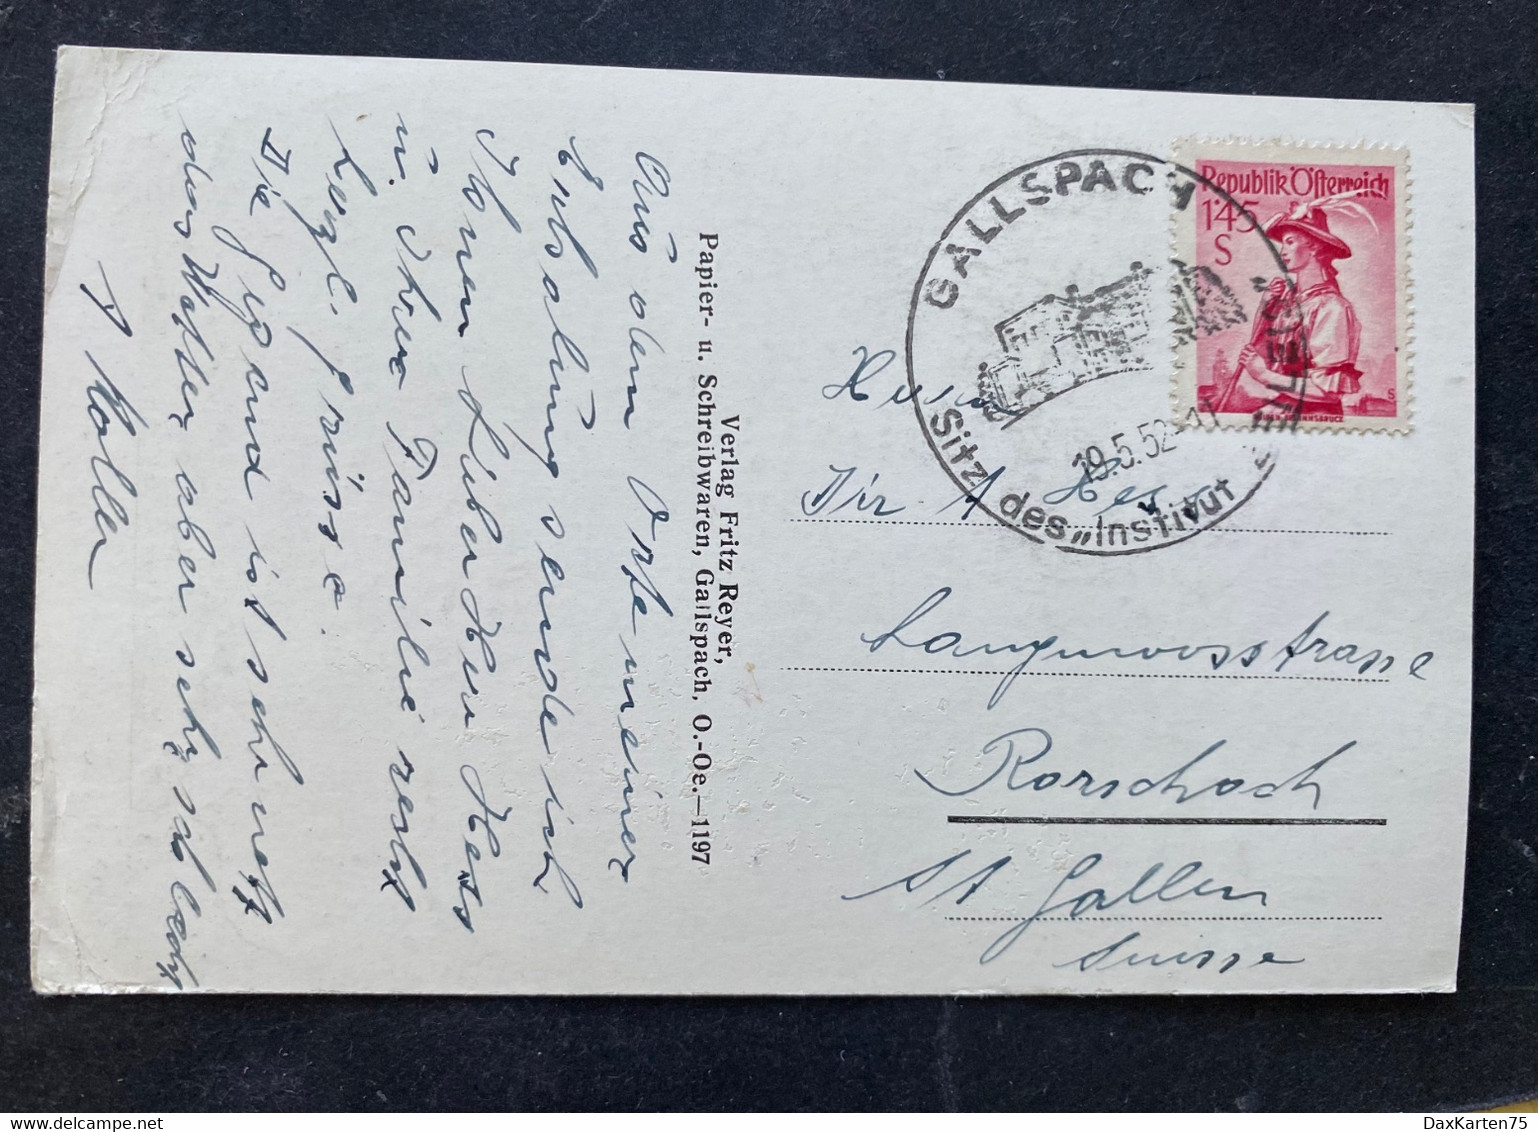 Aus dem Orte meiner
Erholung sende ich
Ihnen Lieber Herr Hess
u. Ihrer Familie recht
herzl. Grüsse.
Die Gegend ist sehr nett
das Wetter aber sehr schlecht
Verlag Fritz Reyer,
Papier- u. Schreibwaren, Gallspach, O.-Oe.—1197
Republik Österreich
1'45
S
GALLSPACH
19.5.52
Sitz des „Institut
Herrn
Dir. A Hess
Langmoosstrasse
Rorschach
St Gallen
Suisse
DaxKarten75